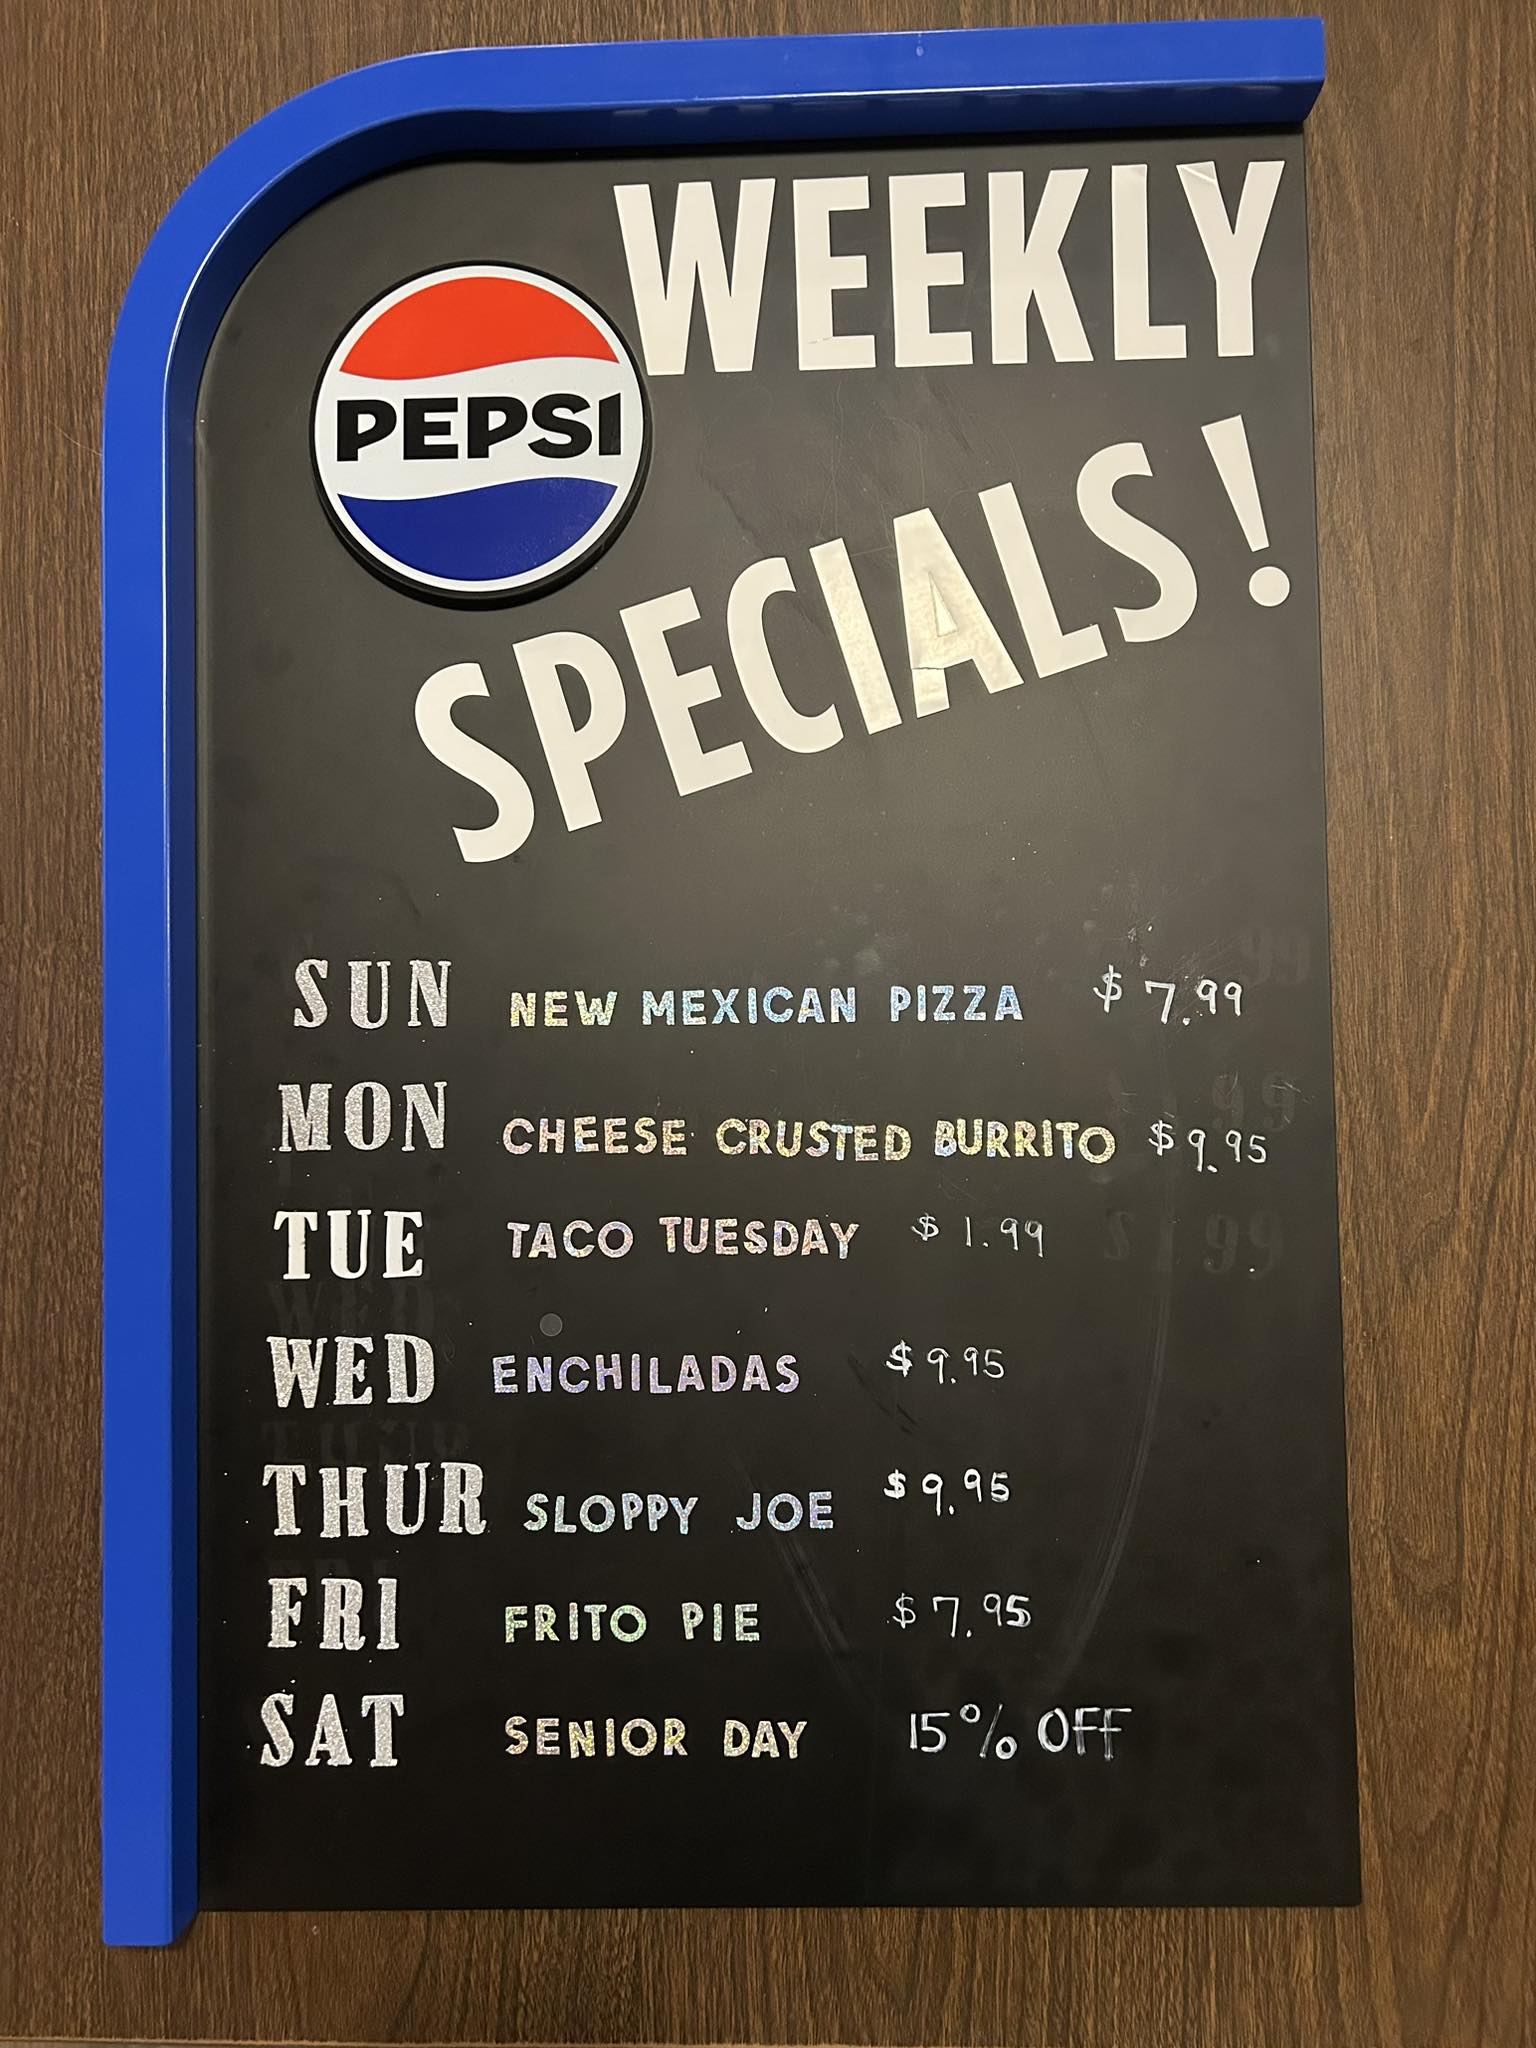 WEEKLY
PEPSI
SPECIALS!
SUN NEW MEXICAN PIZZA $7.99
MON CHEESE CRUSTED BURRITO $9.95
TUE TACO TUESDAY $1.99
WED ENCHILADAS $9.95
THUR SLOPPY JOE $9.95
FRI FRITO PIE $7.95
SAT SENIOR DAY 15% OFF